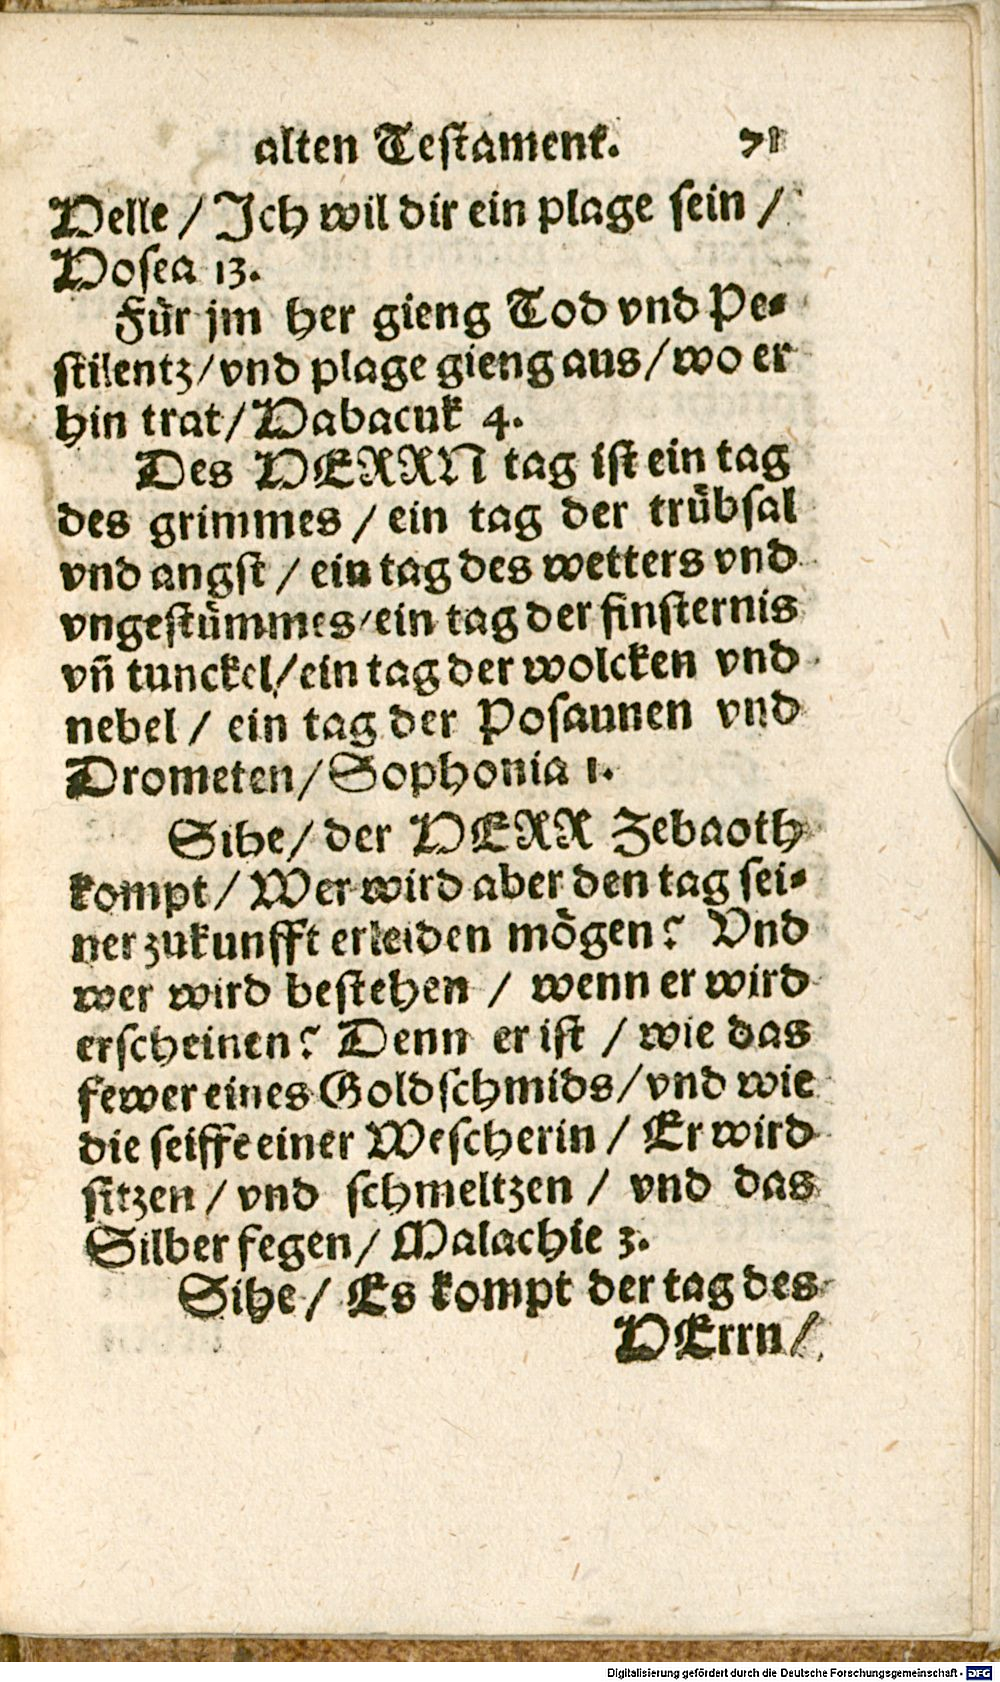 alten Testament. 71
Helle / Ich wil dir ein plage sein /
Hosea 13.
Für jm her gieng Tod vnd Pe-
stilentz/vnd plage gieng aus/wo er
hin trat/Habacuk 4.
Des HERRN tag ist ein tag
des grimmes / ein tag der trübsal
vnd angst / ein tag des wetters vnd
vngestümmes/ein tag der finsternis
vn̄ tunckel/ein tag der wolcken vnd
nebel / ein tag der Posaunen vnd
Drometen/Sophonia 1.
Sihe/ der HERR Zebaoth
kompt/ Wer wird aber den tag sei-
ner zukunfft erleiden mögen? Vnd
wer wird bestehen / wenn er wird
erscheinen? Denn er ist / wie das
fewer eines Goldschmids/vnd wie
die seiffe einer Wescherin / Er wird
sitzen / vnd schmeltzen / vnd das
Silber fegen/ Malachie 3.
Sihe/ Es kompt der tag des
HErrn/
Digitalisierung gefördert durch die Deutsche Forschungsgemeinschaft - DFG